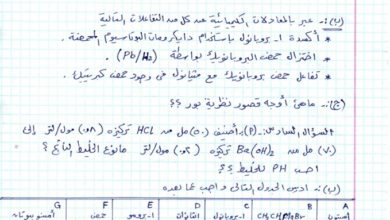 (ب):- عبر بالمعادلات الكيميائية عن كل من التفاعلات التالية
* أكسدة ١- بروبانول باستخدام دايكرومات البوتاسيوم المحمضة.
* اختزال حمض البروبانويك بواسطة (Pb/H₂)
* تفاعل حمض بروبانويك مع ميثانول في وجود حمض كبريتيك.
(ج):- ماهي أوجه قصور نظرية بور ؟؟
السؤال السادس :- (P):- أضيف (٥٠) مل من HCl تركيزه (٠.٨) مول/لتر إلى
(٧٠) مل من Ba(OH)₂ تركيزه (٠.٢) مول/لتر مانوع الخليط الناتج ؟
احسب PH للخليط ؟؟
(ب):- ادرس الجدول التالي و اجب عما بعده
A B C D E F G
CH₃CH₂MgBr القانون ١-برومو حمض أمينو بيوتان